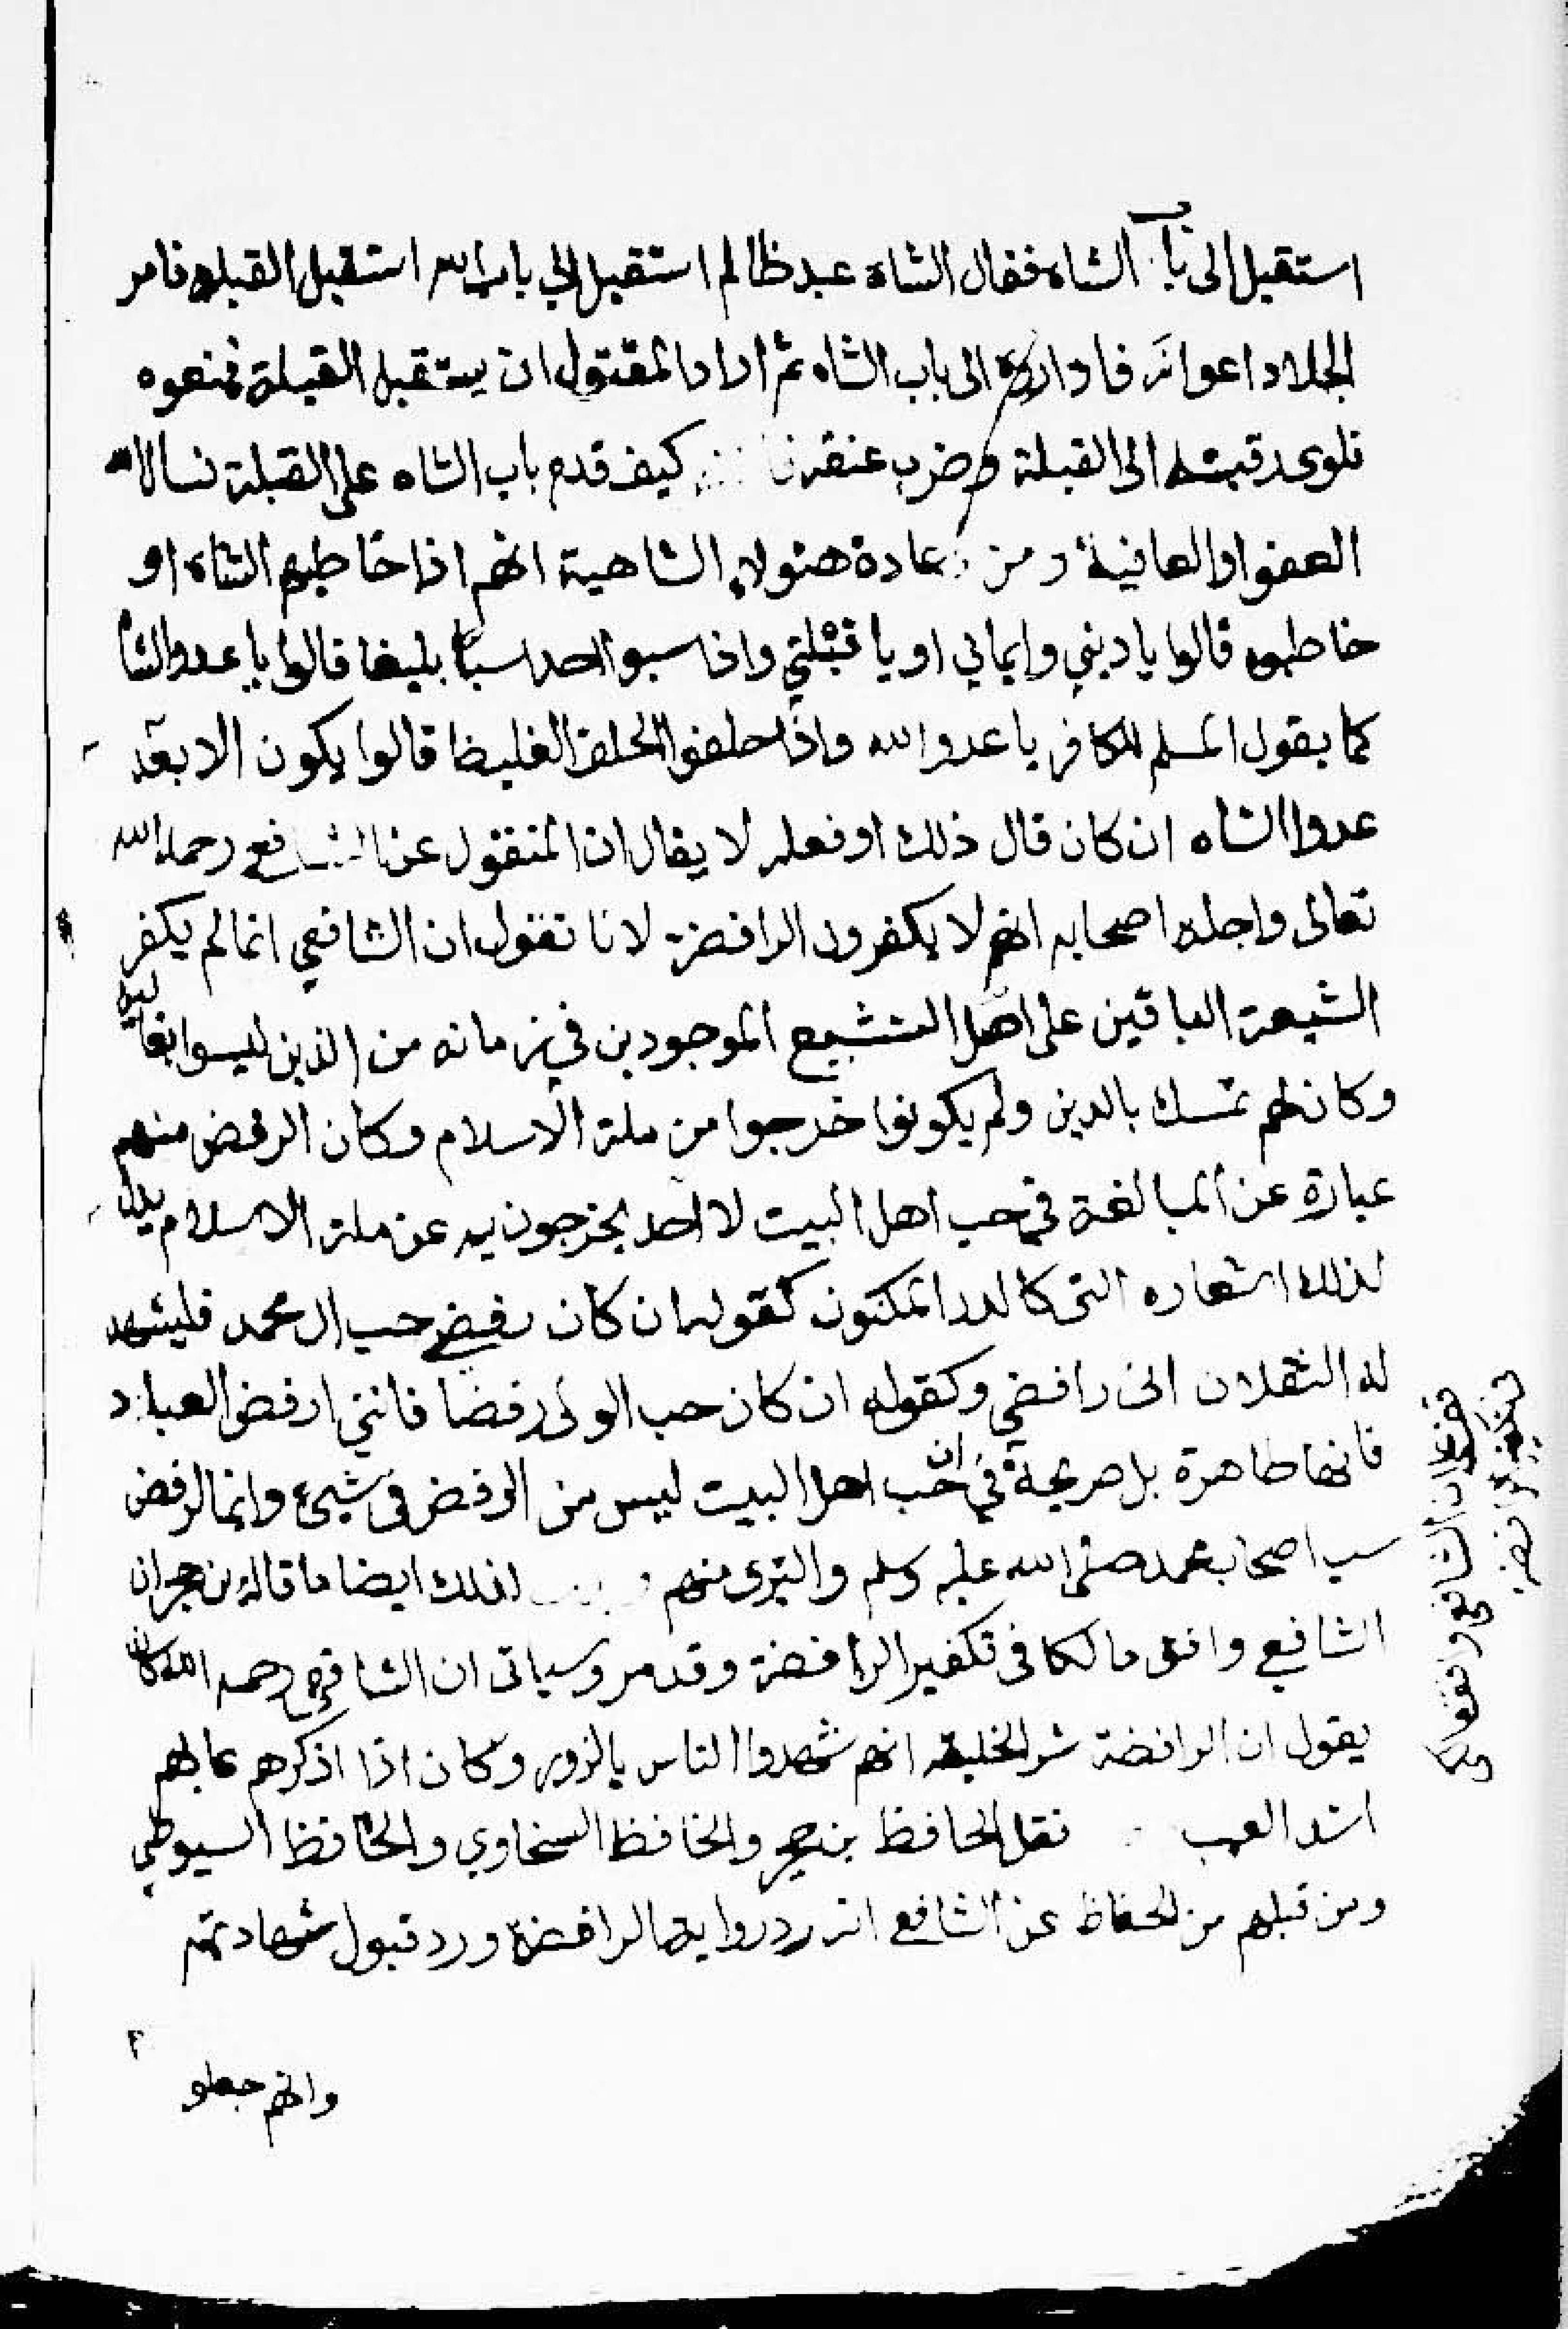 استقبل الى باب الشاه فقال الشاه عبد ظالم استقبل الي باب الله استقبل القبله فامر
الجلاد اعوانه فاداروه الى باب الشاه ثم اراد المقتول ان يستقبل القبلة فمنعوه
فلوى رقبته الى القبلة وضرب عنقه كيف قدم باب الشاه على القبلة نسال الله
العفو والعافية ومن عادة هئولاء الشاهية انهم اذا خاطبهم الشاه او
خاطبوه قالوا يا ديني وايماني او يا قبلتي واذا سبوا احدا سبا بليغا قالوا يا عدو الشاه
كما يقول المسلم للكافر يا عدو الله واذا حلفوا الحلف الغليظ قالوا يكون الابعد
عدوا الشاه ان كان قال ذلك او فعله لا يقال ان المنقول عن الشافعي رحمه الله
تعالى واجله اصحابه انهم لا يكفرون الرافضة لانا نقول ان الشافعي انما لم يكفر
الشيعة الباقين على اصل التشيع الموجودين في زمانه من الذين ليسوا بغاليين
وكان لهم تمسك بالدين ولم يكونوا خرجوا من ملة الاسلام وكان الرفض منهم
عبارة عن المبالغة في حب اهل البيت لا احد يخرجون به عن ملة الاسلام يدل
لذلك اشعاره التي كالدر المكنون كقوله ان كان رفضي حب ال محمد فليشهد
له الثقلان اني رافضي وكقوله ان كان حب الولى رفضا فانني ارفض العباد
فانها ظاهرة بل صريحة في ان حب اهل البيت ليس من الرفض في شيئ وانما الرفض
سب اصحاب محمد صلى الله عليه وسلم والتبري منهم لذلك ايضا ما قاله من حجر ان
الشافعي وافق مالكا في تكفير الرافضة وقد مر وسياتي ان الشافعي رحمه الله كان
يقول ان الرافضة شر الخليقة انهم شهدوا الناس بالزور وكان اذا اذكرهم عابهم
اشد العيب نقل الحافظ بن حجر والحافظ السخاوي والحافظ السيوطي
ومن قبلهم من الحفاظ عن الشافعي انه رد رواية الرافضة ورد قبول شهادتهم
وانهم جعلو
ان الشافعي وافق مالكا
تكفير الرافضة